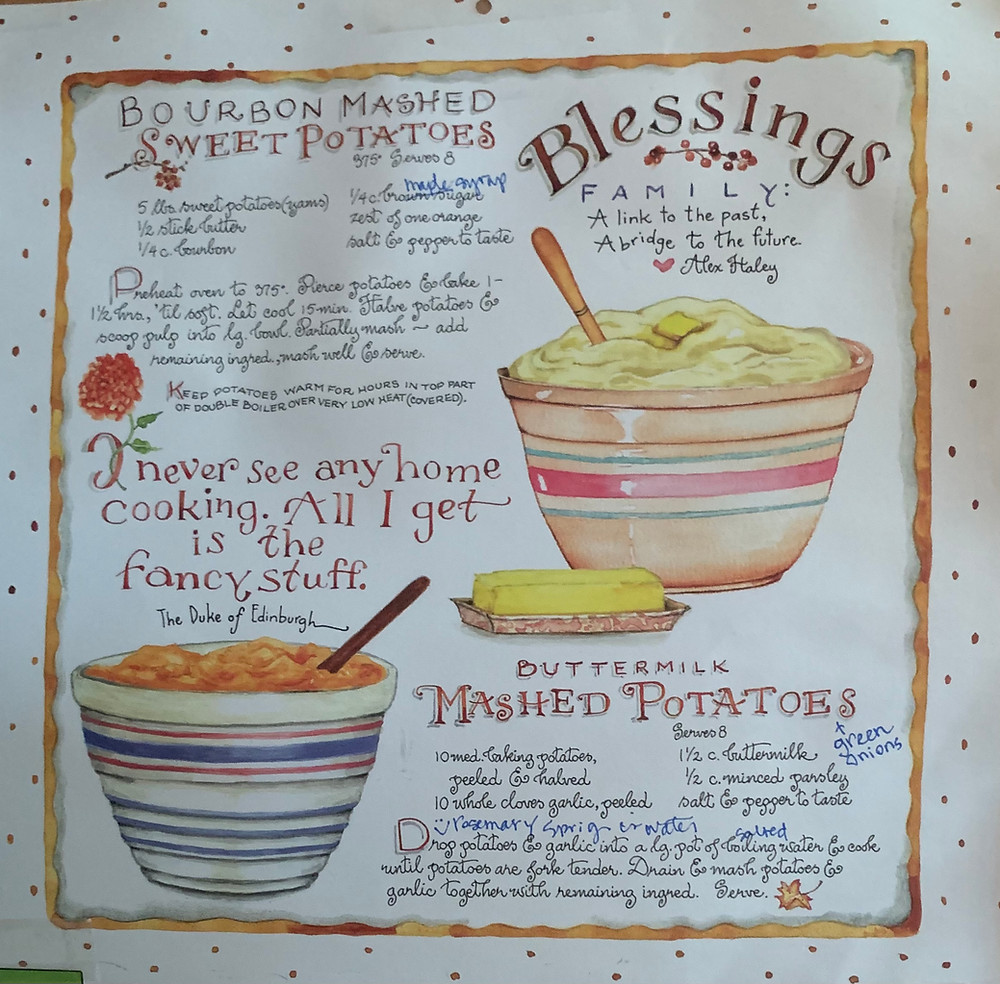 BOURBON MASHED
SWEET POTATOES
375° Serves 8
5 lbs. sweet potatoes (yams)
1/2 stick butter
1/4 c. bourbon
maple syrup
1/4 c. brown sugar
zest of one orange
salt & pepper to taste
Preheat oven to 375°. Pierce potatoes & bake 1-
1 1/2 hrs., 'til soft. Let cool 15 min. Halve potatoes &
scoop pulp into lg. bowl. Partially mash ~ add
remaining ingred., mash well & serve.
KEEP POTATOES WARM FOR HOURS IN TOP PART
OF DOUBLE BOILER OVER VERY LOW HEAT (COVERED).
Blessings
FAMILY:
A link to the past,
A bridge to the future.
Alex Haley
I never see any home
cooking. All I get
is the
fancy stuff.
The Duke of Edinburgh
BUTTERMILK
MASHED POTATOES
Serves 8
10 med. baking potatoes,
peeled & halved
10 whole cloves garlic, peeled
1 1/2 c. buttermilk
1/2 c. minced parsley
salt & pepper to taste
+
green
onions
rosemary sprig in water
salted
Drop potatoes & garlic into a lg. pot of boiling water & cook
until potatoes are fork tender. Drain & mash potatoes &
garlic together with remaining ingred. Serve.